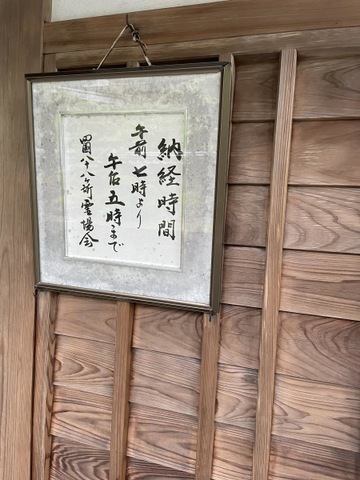 納経時間
午前七時より
午后五時まで
四国八十八ヶ所霊場会